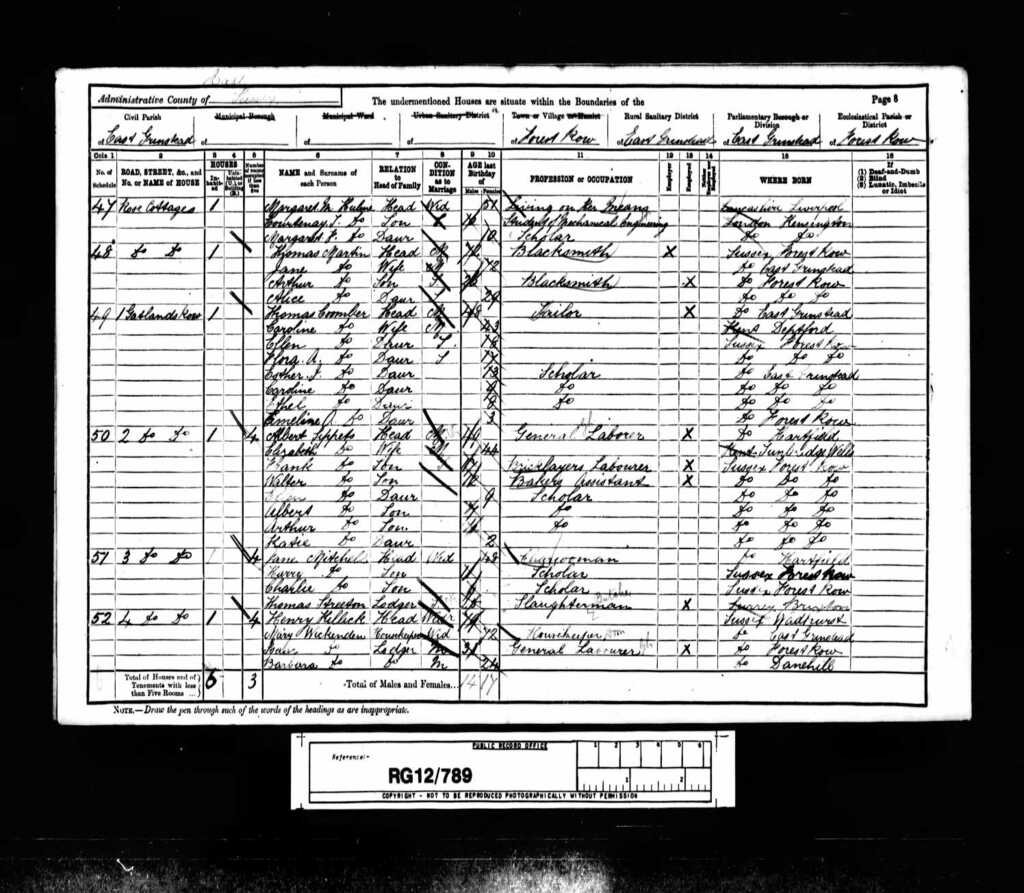 Administrative County of
The undermentioned Houses are situate within the Boundaries of the
Page 8
Civil Parish
Municipal Borough
Municipal Ward
Urban Sanitary District
Town or Village or Hamlet
Rural Sanitary District
Parliamentary Borough or Division
Ecclesiastical Parish or District
of East Grinstead of of of of Forest Row of East Grinstead of East Grinstead of Forest Row
Cols 1 2 3 4 5 6 7 8 9 10 11 12 13 14 15 16
No. of Schedule
ROAD, STREET, &c., and No. or NAME of HOUSE
HOUSES
NAME and Surname of each Person
RELATION to Head of Family
CONDITION as to Marriage
AGE last Birthday of
Males Females
PROFESSION or OCCUPATION
Employer
Employed
WHERE BORN
If
(1) Deaf-and-Dumb
(2) Blind
(3) Lunatic, Imbecile or Idiot
47 Rose Cottages 1 Margaret M. Hulme Head Wid 51 Living on Her Means Lancashire Liverpool
Courtenay Do Son Student of Mechanical Engineering London Kensington
Margaret Do Daur 10 Scholar Do Do
48 Do Do 1 Thomas Martin Head M Blacksmith X Sussex Forest Row
Jane Do Wife M 72 Do East Grinstead
Arthur Do Son S Blacksmith X Do Forest Row
Alice Do Daur 29 Do Do Do
49 1 Gatlands Row 1 Thomas Coomber Head M 48 Tailor X Do East Grinstead
Caroline Do Wife M 43 Kent Deptford
Ellen Do Daur S 18 Sussex Forest Row
Flora A. Do Daur S 17 Do Do Do
Esther J. Do Daur 13 Scholar Do East Grinstead
Caroline Do Daur 9 Do Do Do Do
Ethel Do Daur Do Do Do Do
Emeline A. Do Daur 3 Do Forest Row
50 2 Do Do 1 4 Albert Head M General Laborer X Do Hartfield
Elizabeth Do Wife M 44 Kent Tunbridge Wells
Frank Do Son Bricklayers Labourer X Sussex Forest Row
Walter Do Son Bakers Assistant X Do Do Do
Do Daur 9 Scholar Do Do Do
Albert Do Son Do Do Do Do
Arthur Do Son 4 Do Do Do Do
Katie Do Daur 2 Do Do Do
51 3 Do Do 4 Jane Mitchell Head Wid 48 Charwoman Do Hartfield
Harry Do Son 11 Scholar Sussex Forest Row
Charlie Do Son 6 Scholar Sussex Forest Row
Thomas Streeton Lodger Slaughterman Butcher X Surrey
52 4 Do Do 1 4 Henry Killick Head Widr Sussex Wadhurst
Mary Wickenden Housekeeper Wid 72 Housekeeper Dom Do East Grinstead
Do Lodger M 31 General Labourer X Do Forest Row
Barbara Do Do M 24 Do Danehill
Total of Houses and of Tenements with less than Five Rooms 6 3 Total of Males and Females 14 17
NOTE.—Draw the pen through such of the words of the headings as are inappropriate.
PUBLIC RECORD OFFICE
1 2 3 4 5 6
Reference:-
RG12/789
1 2
COPYRIGHT - NOT TO BE REPRODUCED PHOTOGRAPHICALLY WITHOUT PERMISSION